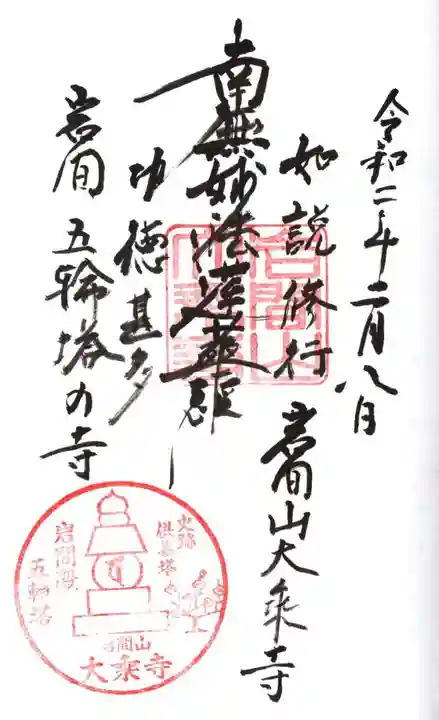 令和二年二月八日
如説修行
岩间山大乗寺
南無妙法蓮華経
功徳甚多
岩间 五輪塔の寺
史跡
供養塔
岩間
五輪塔
岩間山
大乗寺